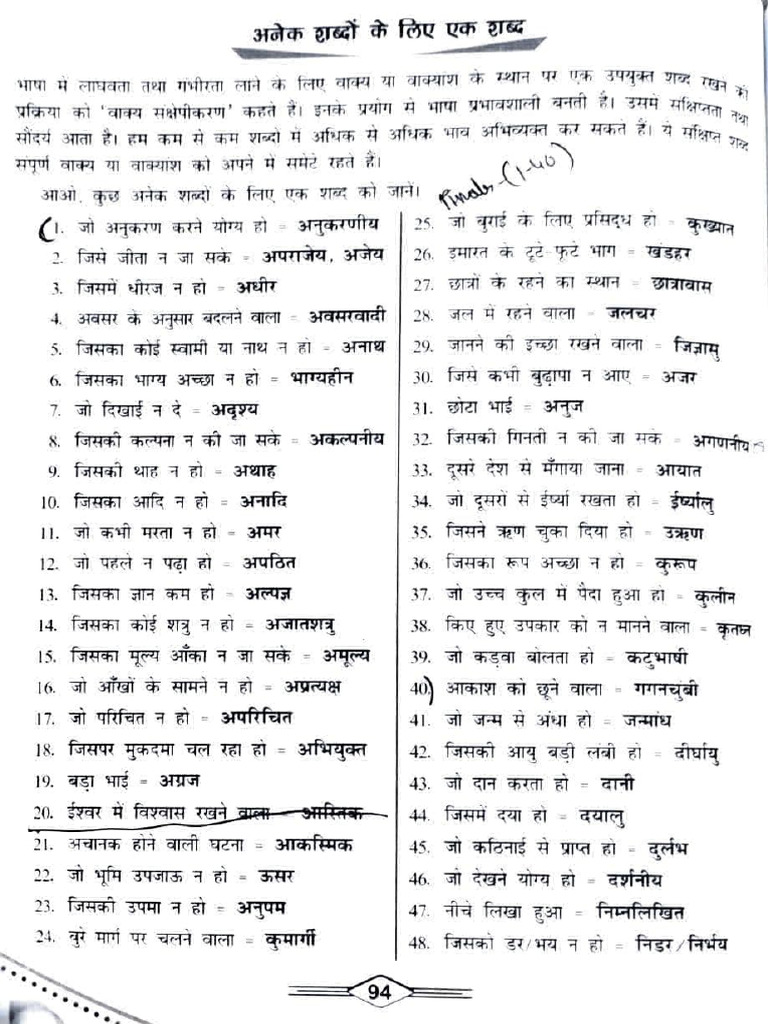 अनेक शब्दों के लिए एक शब्द
भाषा में लाघवता तथा गंभीरता लाने के लिए वाक्य या वाक्यांश के स्थान पर एक उपयुक्त शब्द रखने की
प्रक्रिया को 'वाक्य संक्षेपीकरण' कहते हैं। इनके प्रयोग से भाषा प्रभावशाली बनती है। उसमें संक्षिप्तता तथा
सौंदर्य आता है। हम कम से कम शब्दों में अधिक से अधिक भाव अभिव्यक्त कर सकते हैं। ये संक्षिप्त शब्द
संपूर्ण वाक्य या वाक्यांश को अपने में समेटे रहते हैं।
आओ, कुछ अनेक शब्दों के लिए एक शब्द को जानें।
(1-40)
1. जो अनुकरण करने योग्य हो = अनुकरणीय
2. जिसे जीता न जा सके = अपराजेय, अजेय
3. जिसमें धीरज न हो = अधीर
4. अवसर के अनुसार बदलने वाला = अवसरवादी
5. जिसका कोई स्वामी या नाथ न हो = अनाथ
6. जिसका भाग्य अच्छा न हो = भाग्यहीन
7. जो दिखाई न दे = अदृश्य
8. जिसकी कल्पना न की जा सके = अकल्पनीय
9. जिसकी थाह न हो = अथाह
10. जिसका आदि न हो = अनादि
11. जो कभी मरता न हो = अमर
12. जो पहले न पढ़ा हो = अपठित
13. जिसका ज्ञान कम हो = अल्पज्ञ
14. जिसका कोई शत्रु न हो = अजातशत्रु
15. जिसका मूल्य आँका न जा सके = अमूल्य
16. जो आँखों के सामने न हो = अप्रत्यक्ष
17. जो परिचित न हो = अपरिचित
18. जिसपर मुकदमा चल रहा हो = अभियुक्त
19. बड़ा भाई = अग्रज
20. ईश्वर में विश्वास रखने वाला = आस्तिक
21. अचानक होने वाली घटना = आकस्मिक
22. जो भूमि उपजाऊ न हो = ऊसर
23. जिसकी उपमा न हो = अनुपम
24. बुरे मार्ग पर चलने वाला = कुमार्गी
25. जो बुराई के लिए प्रसिद्ध हो = कुख्यात
26. इमारत के टूटे-फूटे भाग = खंडहर
27. छात्रों के रहने का स्थान = छात्रावास
28. जल में रहने वाला = जलचर
29. जानने की इच्छा रखने वाला = जिज्ञासु
30. जिसे कभी बुढ़ापा न आए = अजर
31. छोटा भाई = अनुज
32. जिसकी गिनती न की जा सके = अगणनीय
33. दूसरे देश से मँगाया जाना = आयात
34. जो दूसरों से ईर्ष्या रखता हो = ईर्ष्यालु
35. जिसने ऋण चुका दिया हो = उऋण
36. जिसका रूप अच्छा न हो = कुरूप
37. जो उच्च कुल में पैदा हुआ हो = कुलीन
38. किए हुए उपकार को न मानने वाला = कृतघ्न
39. जो कड़वा बोलता हो = कटुभाषी
40. आकाश को छूने वाला = गगनचुंबी
41. जो जन्म से अंधा हो = जन्मांध
42. जिसकी आयु बड़ी लंबी हो = दीर्घायु
43. जो दान करता हो = दानी
44. जिसमें दया हो = दयालु
45. जो कठिनाई से प्राप्त हो = दुर्लभ
46. जो देखने योग्य हो = दर्शनीय
47. नीचे लिखा हुआ = निम्नलिखित
48. जिसको डर/भय न हो = निडर/निर्भय
94